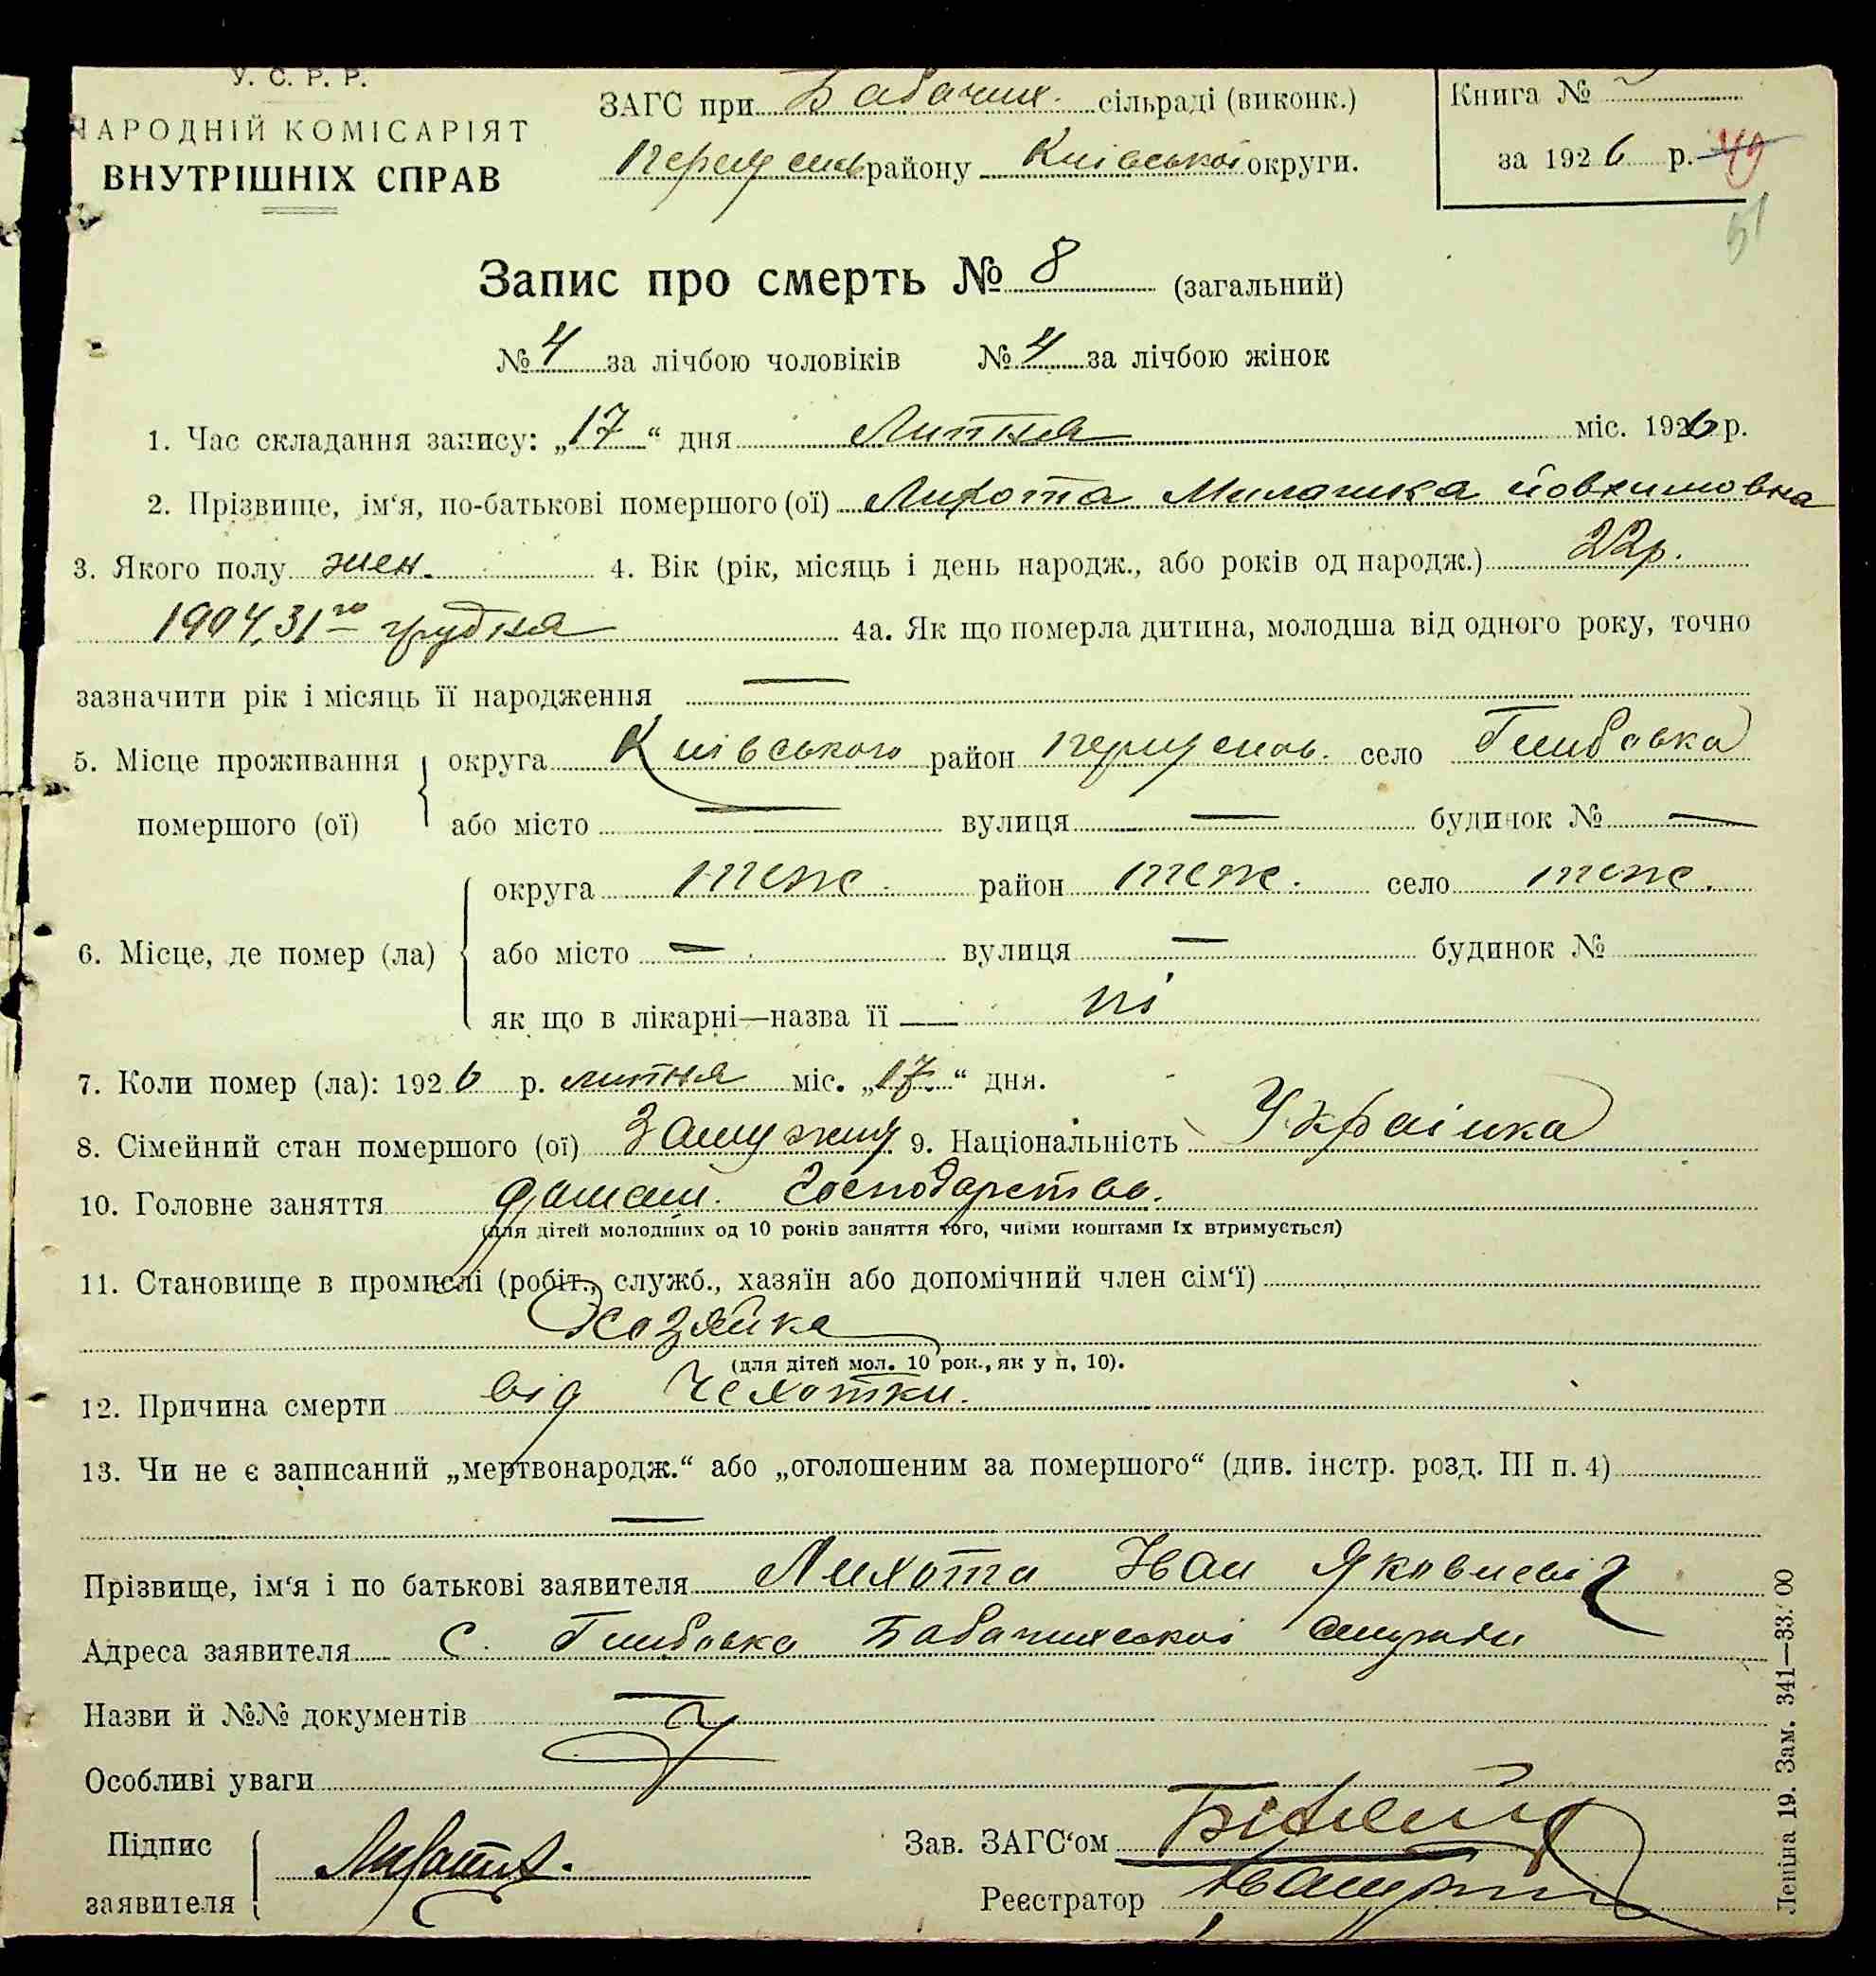 У. С. Р. Р.
НАРОДНІЙ КОМІСАРІЯТ
ВНУТРІШНІХ СПРАВ
ЗАГС при Бабачих. сільраді (виконк.)
району Київської округи.
Книга №
за 1926 р. 49
51
Запис про смерть № 8 (загальний)
№ 4 за лічбою чоловіків № 4 за лічбою жінок
1. Час складання запису: „17“ дня Липня міс. 1926 р.
2. Прізвище, ім‘я, по-батькові помершого (ої) Лихота
3. Якого полу жен. 4. Вік (рік, місяць і день народж., або років од народж.) 22р.
1904, 31го грудня 4а. Як що померла дитина, молодша від одного року, точно
зазначити рік і місяць її народження —
5. Місце проживання помершого (ої) округа Київського район село
або місто — вулиця — будинок № —
6. Місце, де помер (ла) округа теж. район теж. село теж.
або місто — вулиця — будинок №
як що в лікарні—назва її — ні
7. Коли помер (ла): 1926 р. липня міс. „17.“ дня.
8. Сімейний стан помершого (ої) Замужня 9. Національність Українка
10. Головне заняття домаш. господарство.
(для дітей молодших од 10 років заняття того, чиїми коштами їх втримується)
11. Становище в промислі (робіт., служб., хазяїн або допомічний член сім‘ї)
Хозяйка
(для дітей мол. 10 рок., як у п. 10).
12. Причина смерти від Чехотки.
13. Чи не є записаний „мертвонародж.“ або „оголошеним за помершого“ (див. інстр. розд. III п. 4)
—
Прізвище, ім‘я і по батькові заявителя Лихота Іван Яковлевіч
Адреса заявителя С.
Назви й №№ документів —
Особливі уваги
Підпис заявителя Лихота.
Зав. ЗАГС‘ом
Реєстратор
Леніна 19. Зам. 341—33. 00